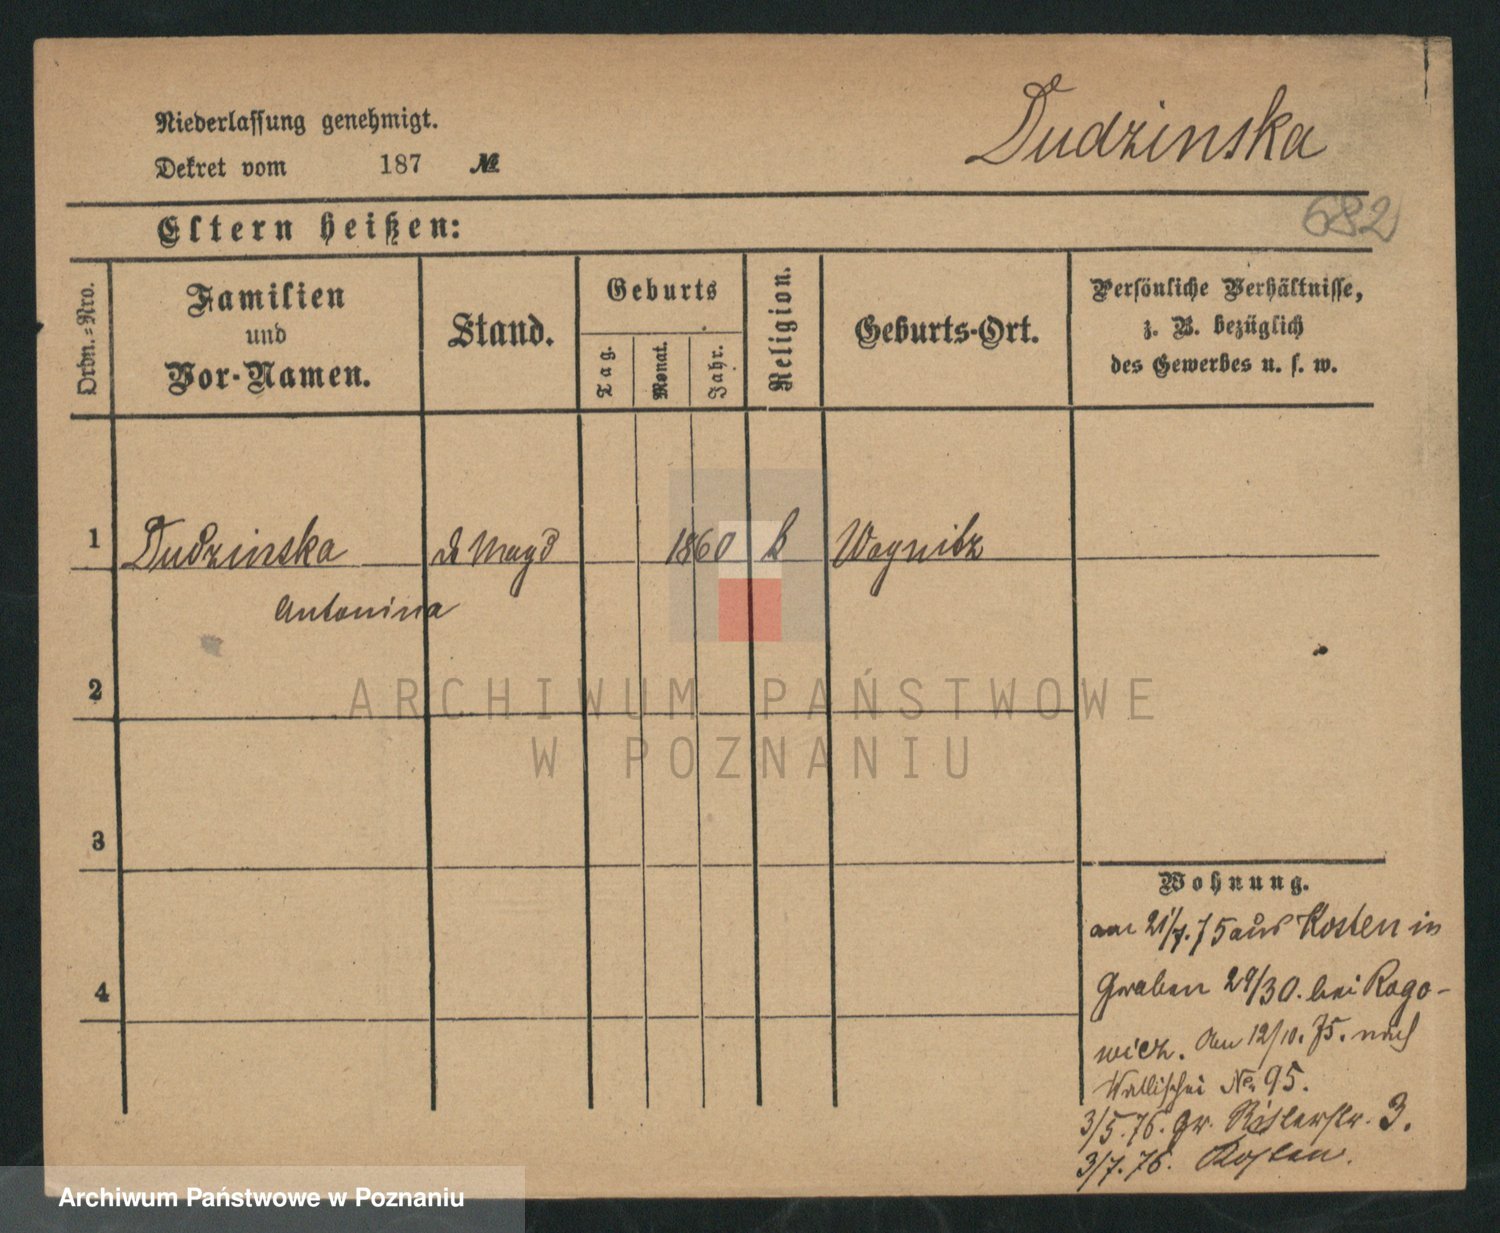 Niederlassung genehmigt.
Dekret vom 187 №
Dudzinska
682
Eltern heißen:
Ordn.-Nro.
Familien
und
Vor-Namen.
Stand.
Geburts
Tag.
Monat.
Jahr.
Religion.
Geburts-Ort.
Persönliche Verhältnisse,
z. B. bezüglich
des Gewerbes u. s. w.
1 Dudzinska d Magd 1860 k
Antonina
2
ARCHIWUM PAŃSTWOWE
W POZNANIU
3
4
Wohnung.
am 21/7.75 aus Kosten in
Graben 29/30. bei Rogo-
wicz. Am 12/10. 75. nach
Wallischei No 95.
3/5.76. gr. 3.
3/7.76. Kosten.
Archiwum Państwowe w Poznaniu